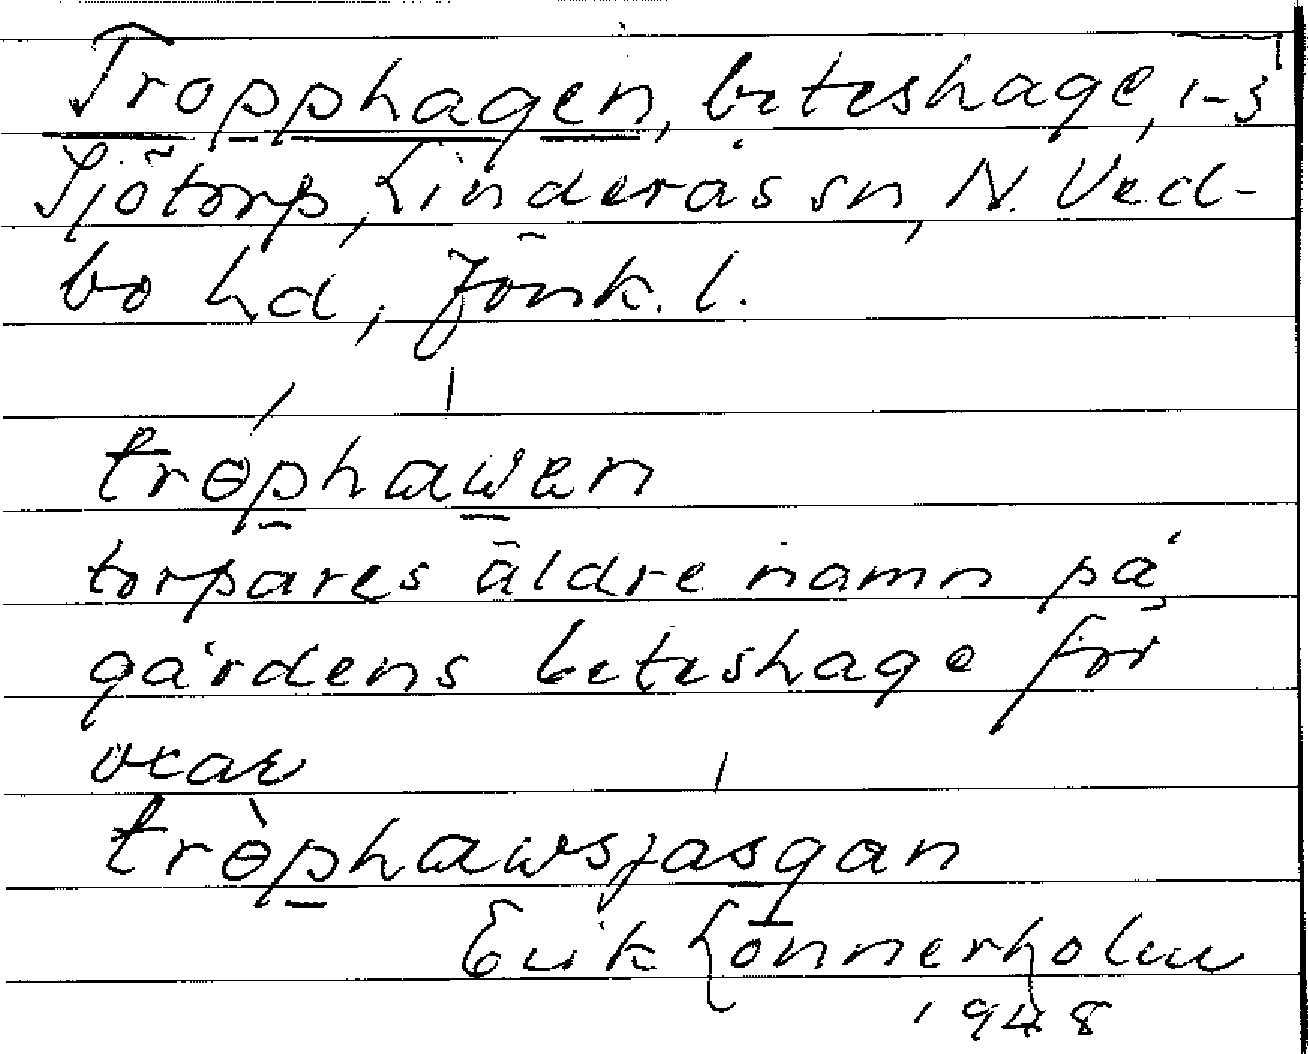 Tropphagen, beteshage, 1-3
Sjötorp, Linderås sn, N. Ved-
bo hd, Jönk. l.
trɵ́phawen
torpares äldre namn på
gårdens beteshage för
oxar
trɵ̀phawsjasgan
Erik Lönnerholm
1948